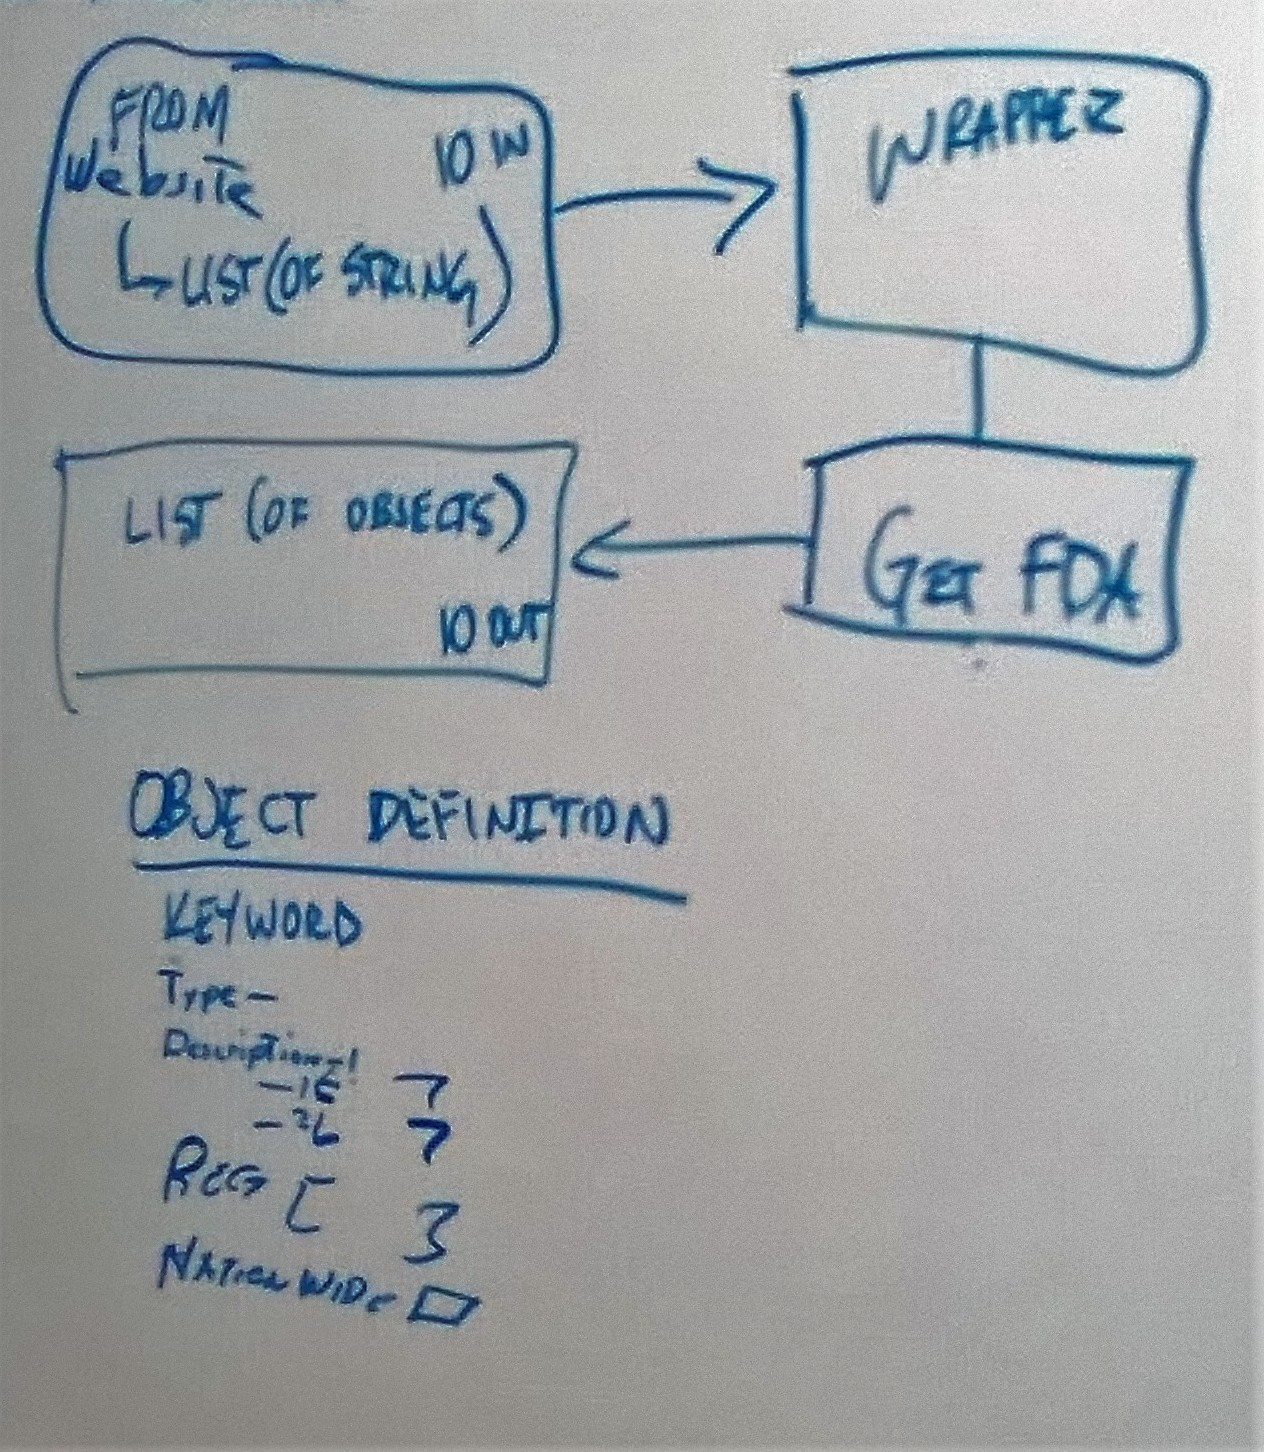 FROM
Website
10 IN
LIST (OF STRING)
WRAPPER
LIST (OF OBJECTS)
10 OUT
GET FDA
OBJECT DEFINITION
KEYWORD
TYPE -
Description -
7
7
REG [ 3
NATIONWIDE